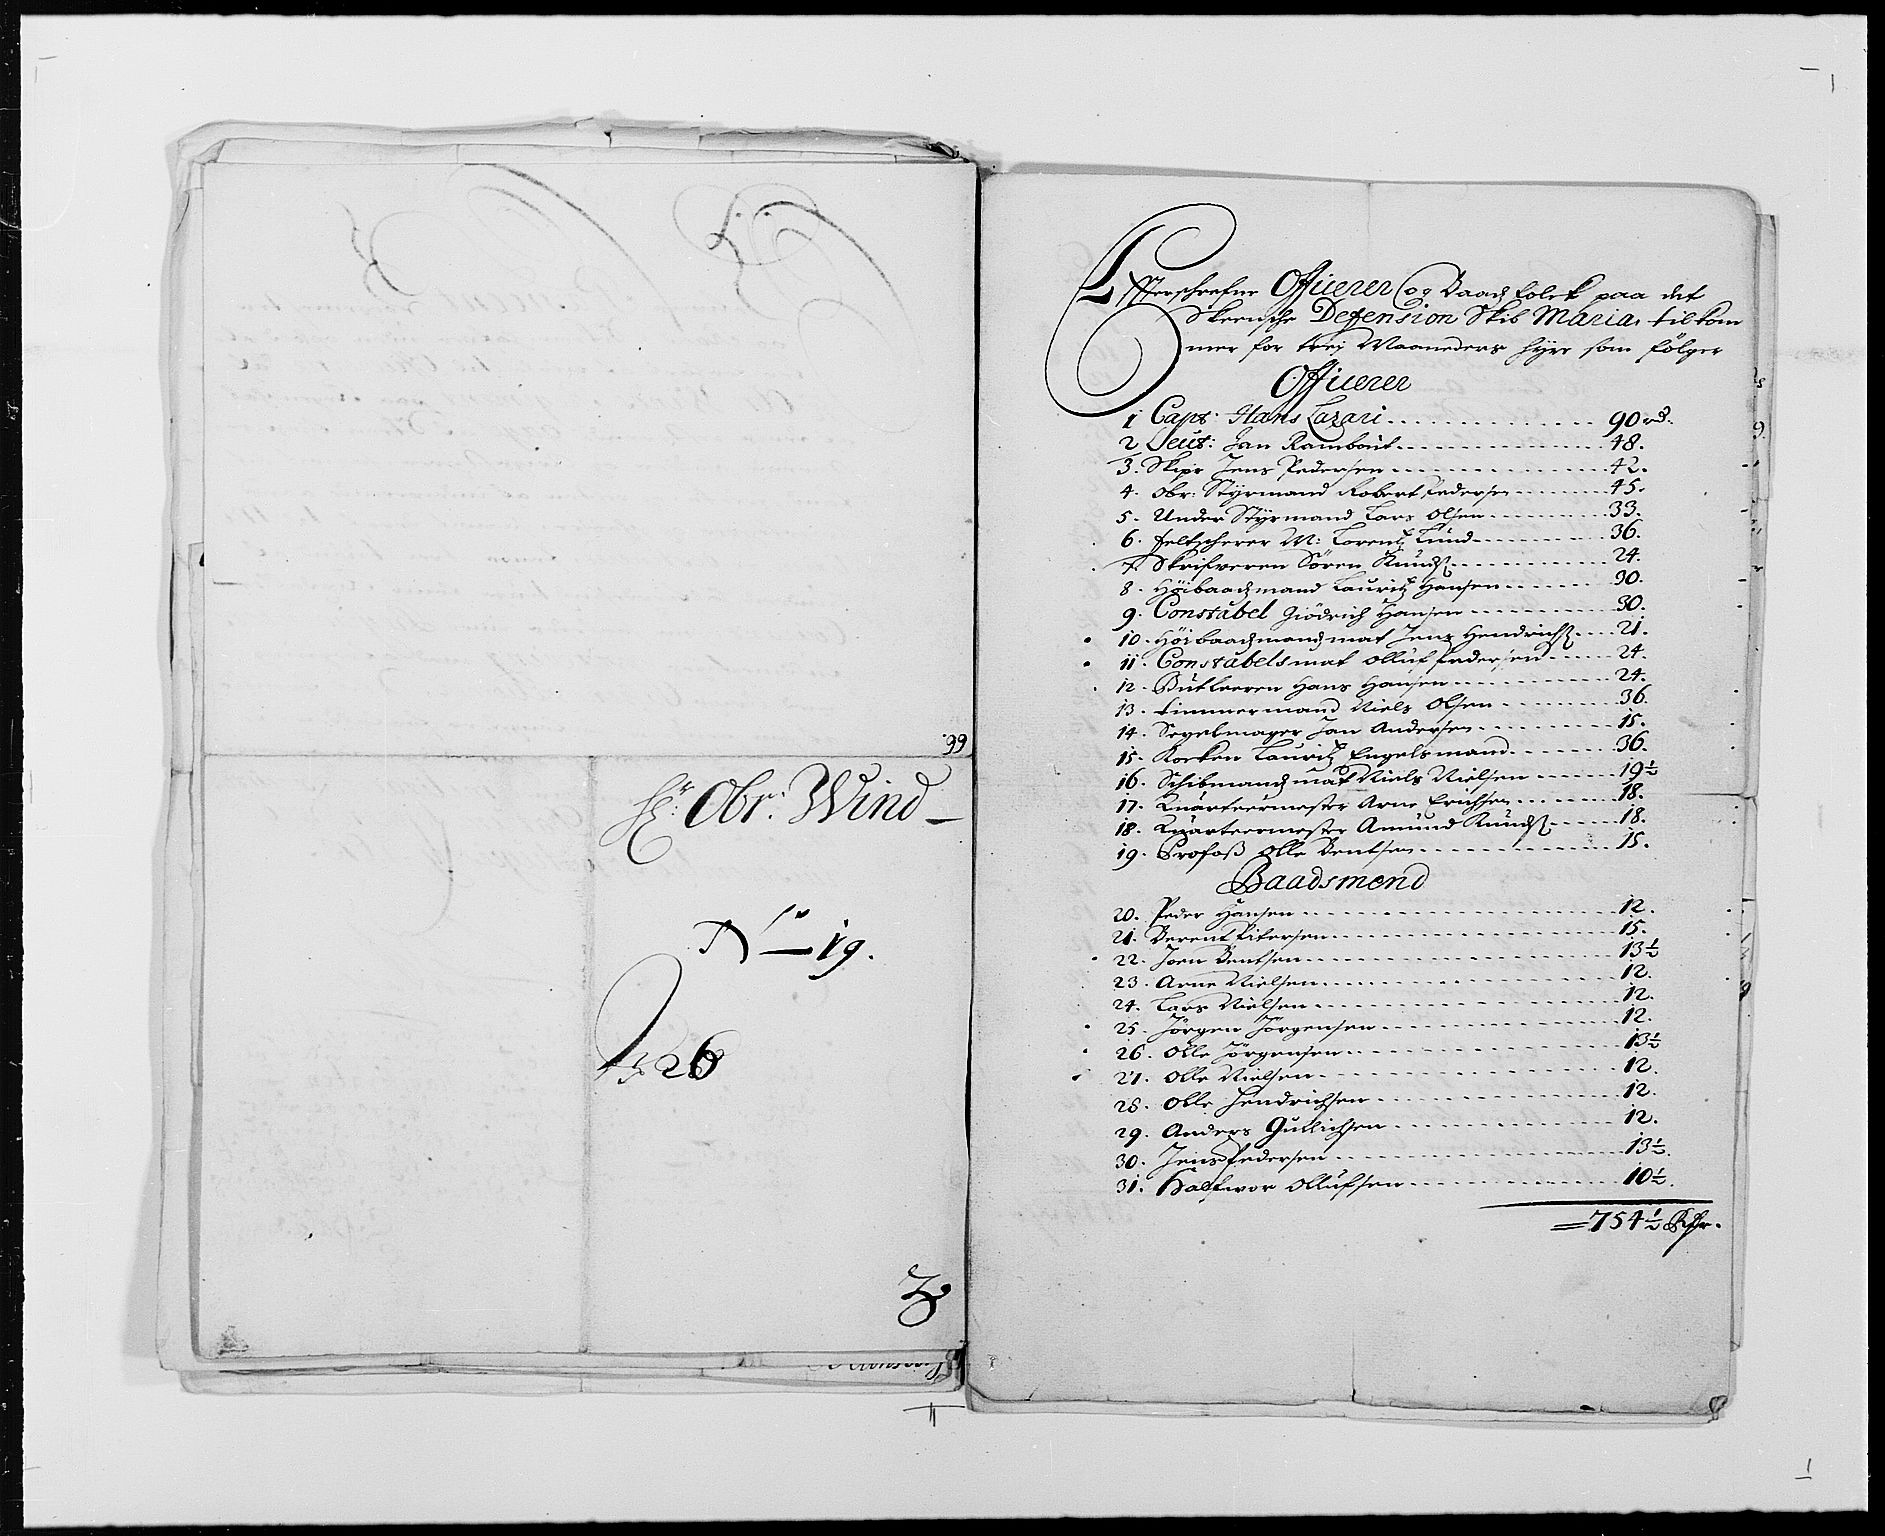 99.
Hr: Obr: Wind
No 19.
26
Efterschrefne Officerer og Baadz folck paa det
Skeensche Defension Skib Maria, tilkom
mer for trej Maaneders hyre som følger
Officerer
1 Capt: Hans Lazari 90 rd.
2 Leut: Jan Rambout 48.
3. Skipr Jens Pedersen 42.
4. Obr: Styrmand Robert Pedersen 45.
5. Under Styrmand Lars Olsen 33.
6. Feltscherer M: Lorentz Lund 36.
7. Skrifveren Sören Knudsß 24.
8. Höibaadzmand Lauritz Hansen 30.
9. Constabel Giödrich Hansen 30.
10. Höibaadzmandzmat Jens Hendrichsß 21.
11. Constabelsmat Olluf Pedersen 24.
12. Butleeren Hans Hansen 24.
13. Timmermand Niels Olsen 36.
14. Segelmager Jan Andersen 15.
15. Kocken Lauritz Engelsmand 36.
16. Schibmandz mat Niels Nielsen 19½
17. Quarteermester Arne Erichsen 18.
18. Quarteermester Amund Knudsß 18.
19. Profoß Olle Bentsen 15.
Baadsmend
20. Peder Hansen 12.
21. Berent Pitersen 15.
22. Joen Bentsen 13½
23. Arne Nielsen 12.
24. Lars Nielsen 12.
25. Jörgen Jörgensen 12.
26. Olle Jörgensen 13½
27. Olle Nielsen 12.
28. Olle Hendrichsen 12.
29. Anders Gullichsen 12.
30. Jens Pedersen 13½.
31. Halfwor Ollufsen 10½.
=754½ Rdr.